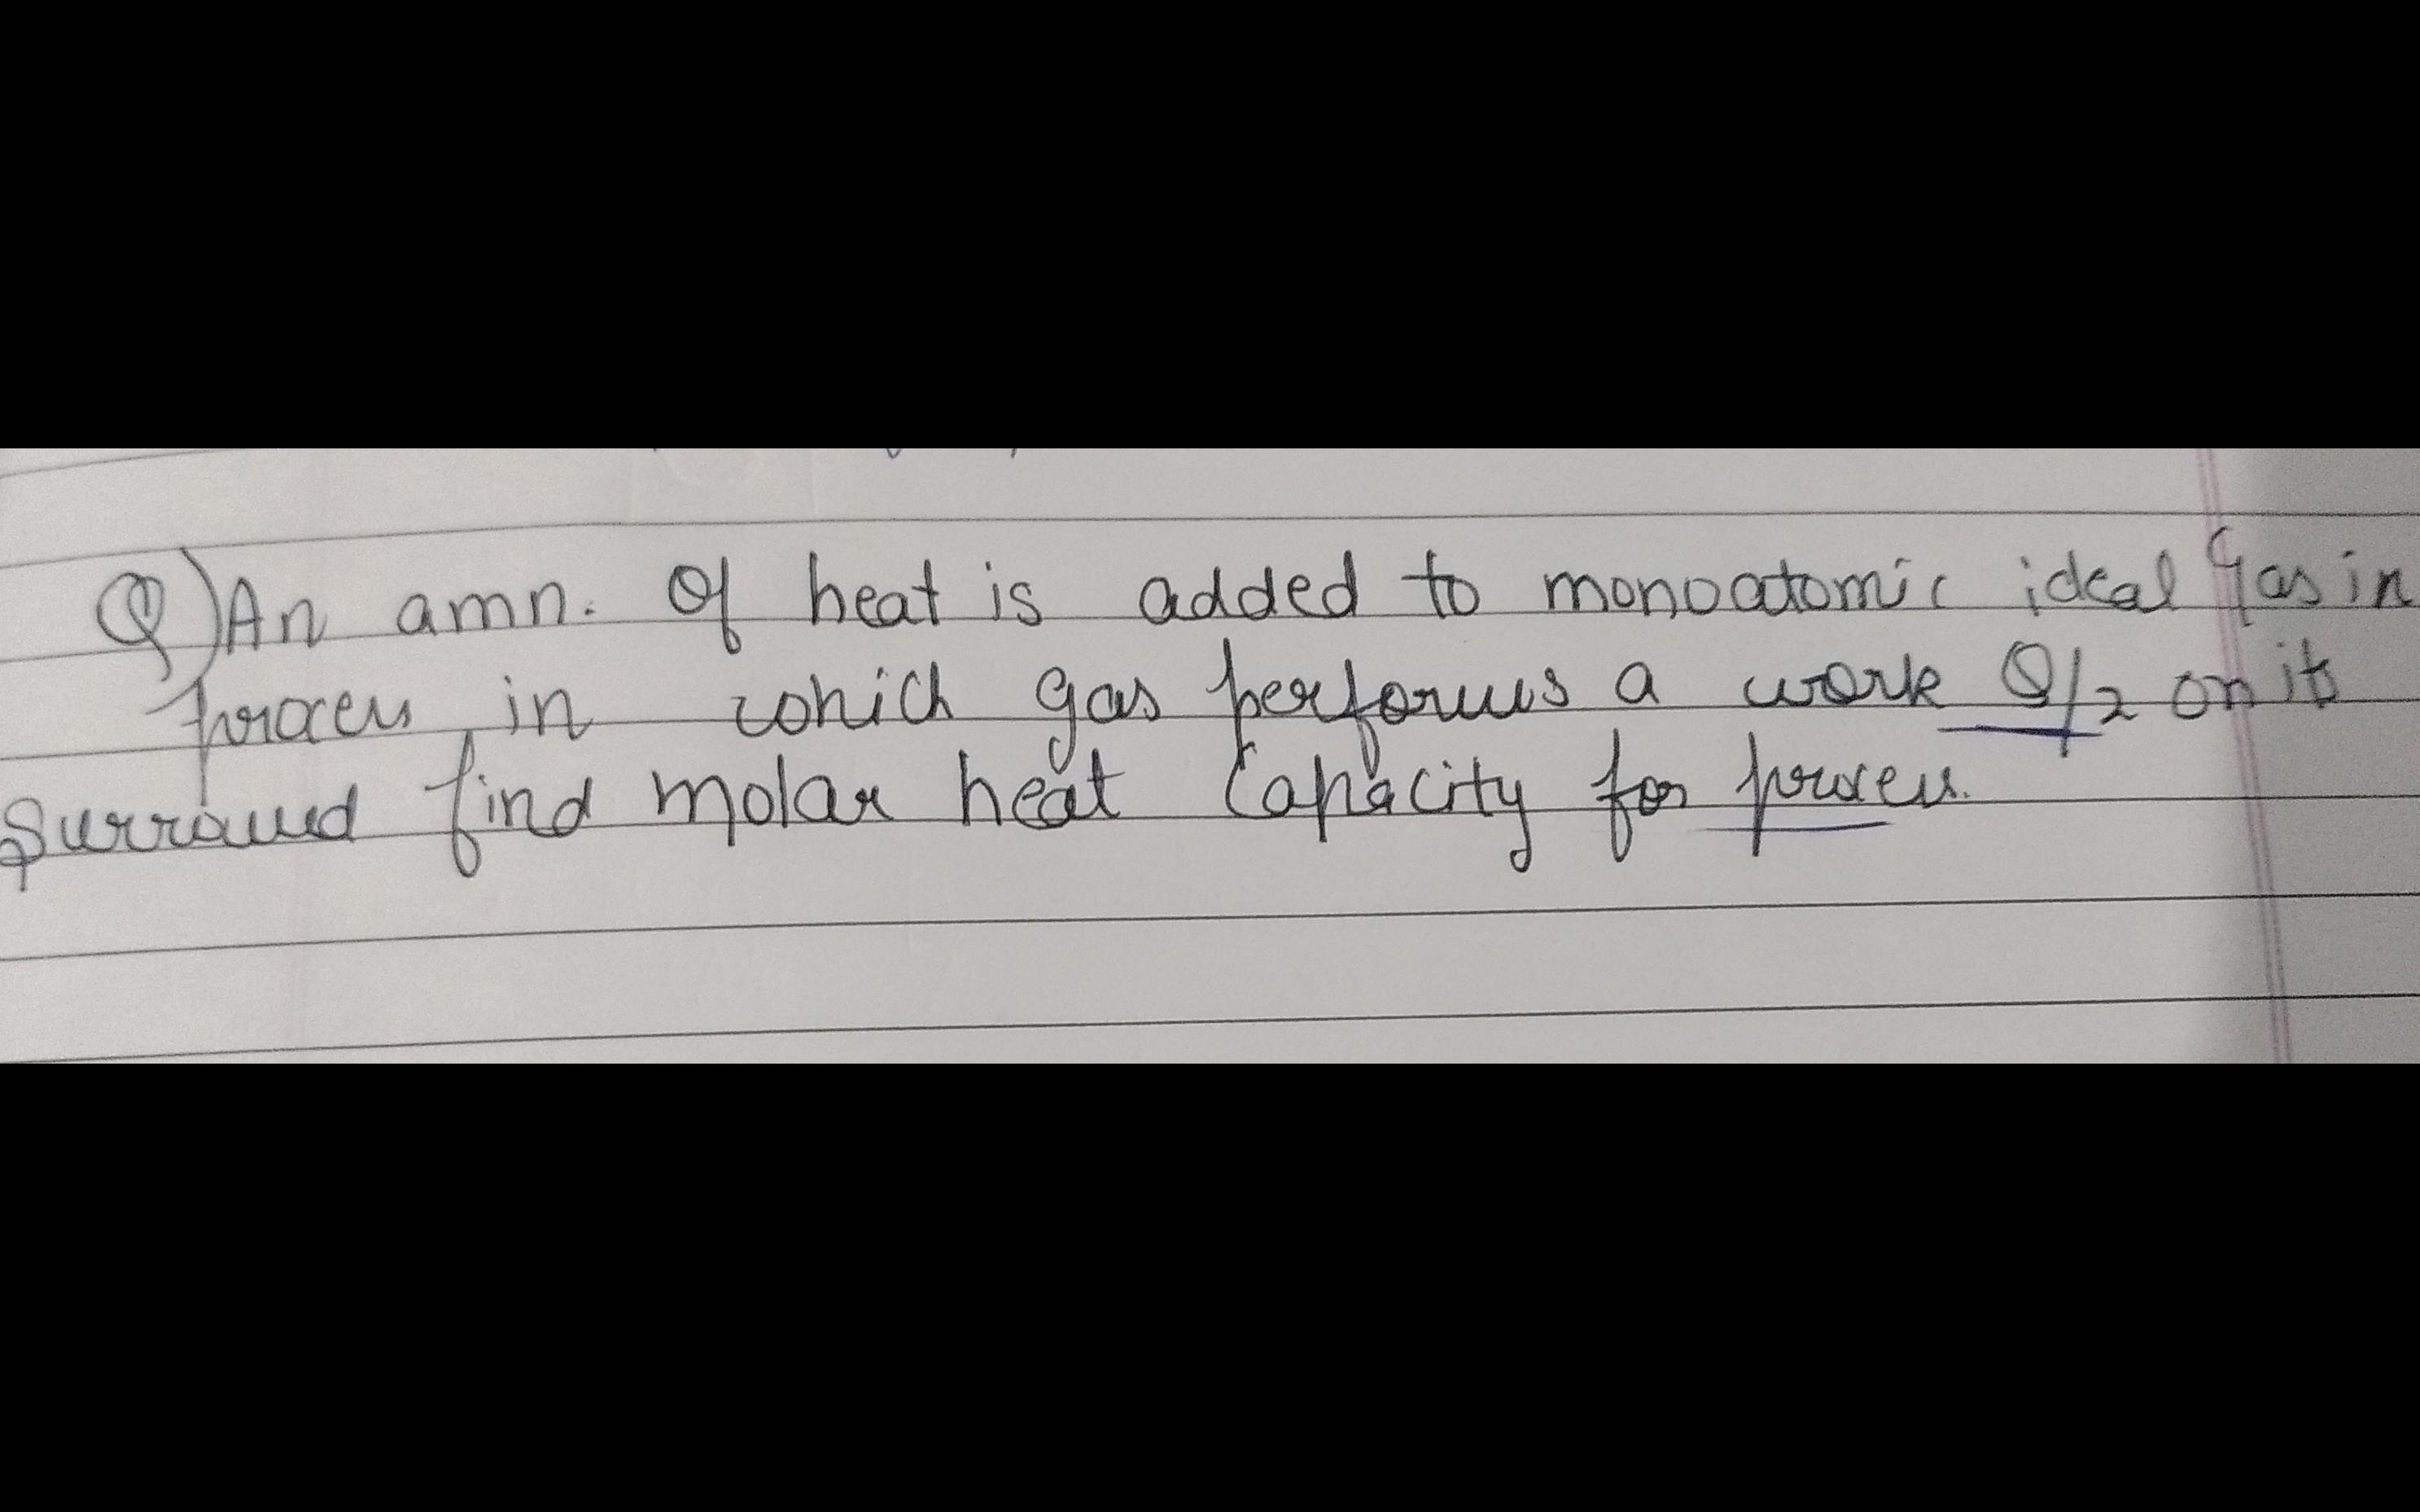 Q) An amn. of heat is added to monoatomic ideal Gas in
process in which gas performs a work Q/2 on its
surround find molar heat Capacity for process.